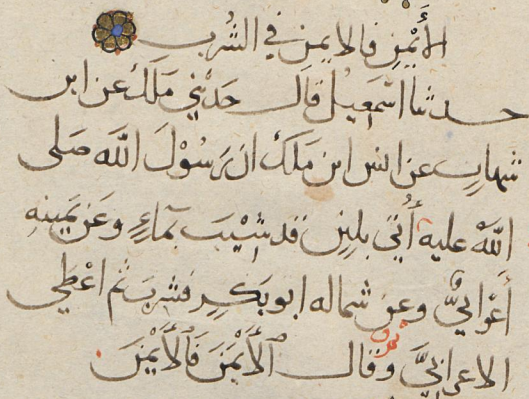 الأَيْمَنِ فالايمن في الشُرب
حدثنا اسْمعِيلُ قال حدّثني مَلَكٌ عن ابن
شهابٍ عن انس ابن مَلَكٍ ان رَسُوْلَ اللَّه صَلى
اللَّهُ عليه أُتي بلبنٍ قد شِيْبَ بمآءٍ وعَن يَمينهِ
أعْرابيٌّ وعن شماله ابو بَكرٍ فشرِبَ ثم اعْطى
الاعرابيَّ وقال الأَيْمَنَ فَالأَيْمَنَ